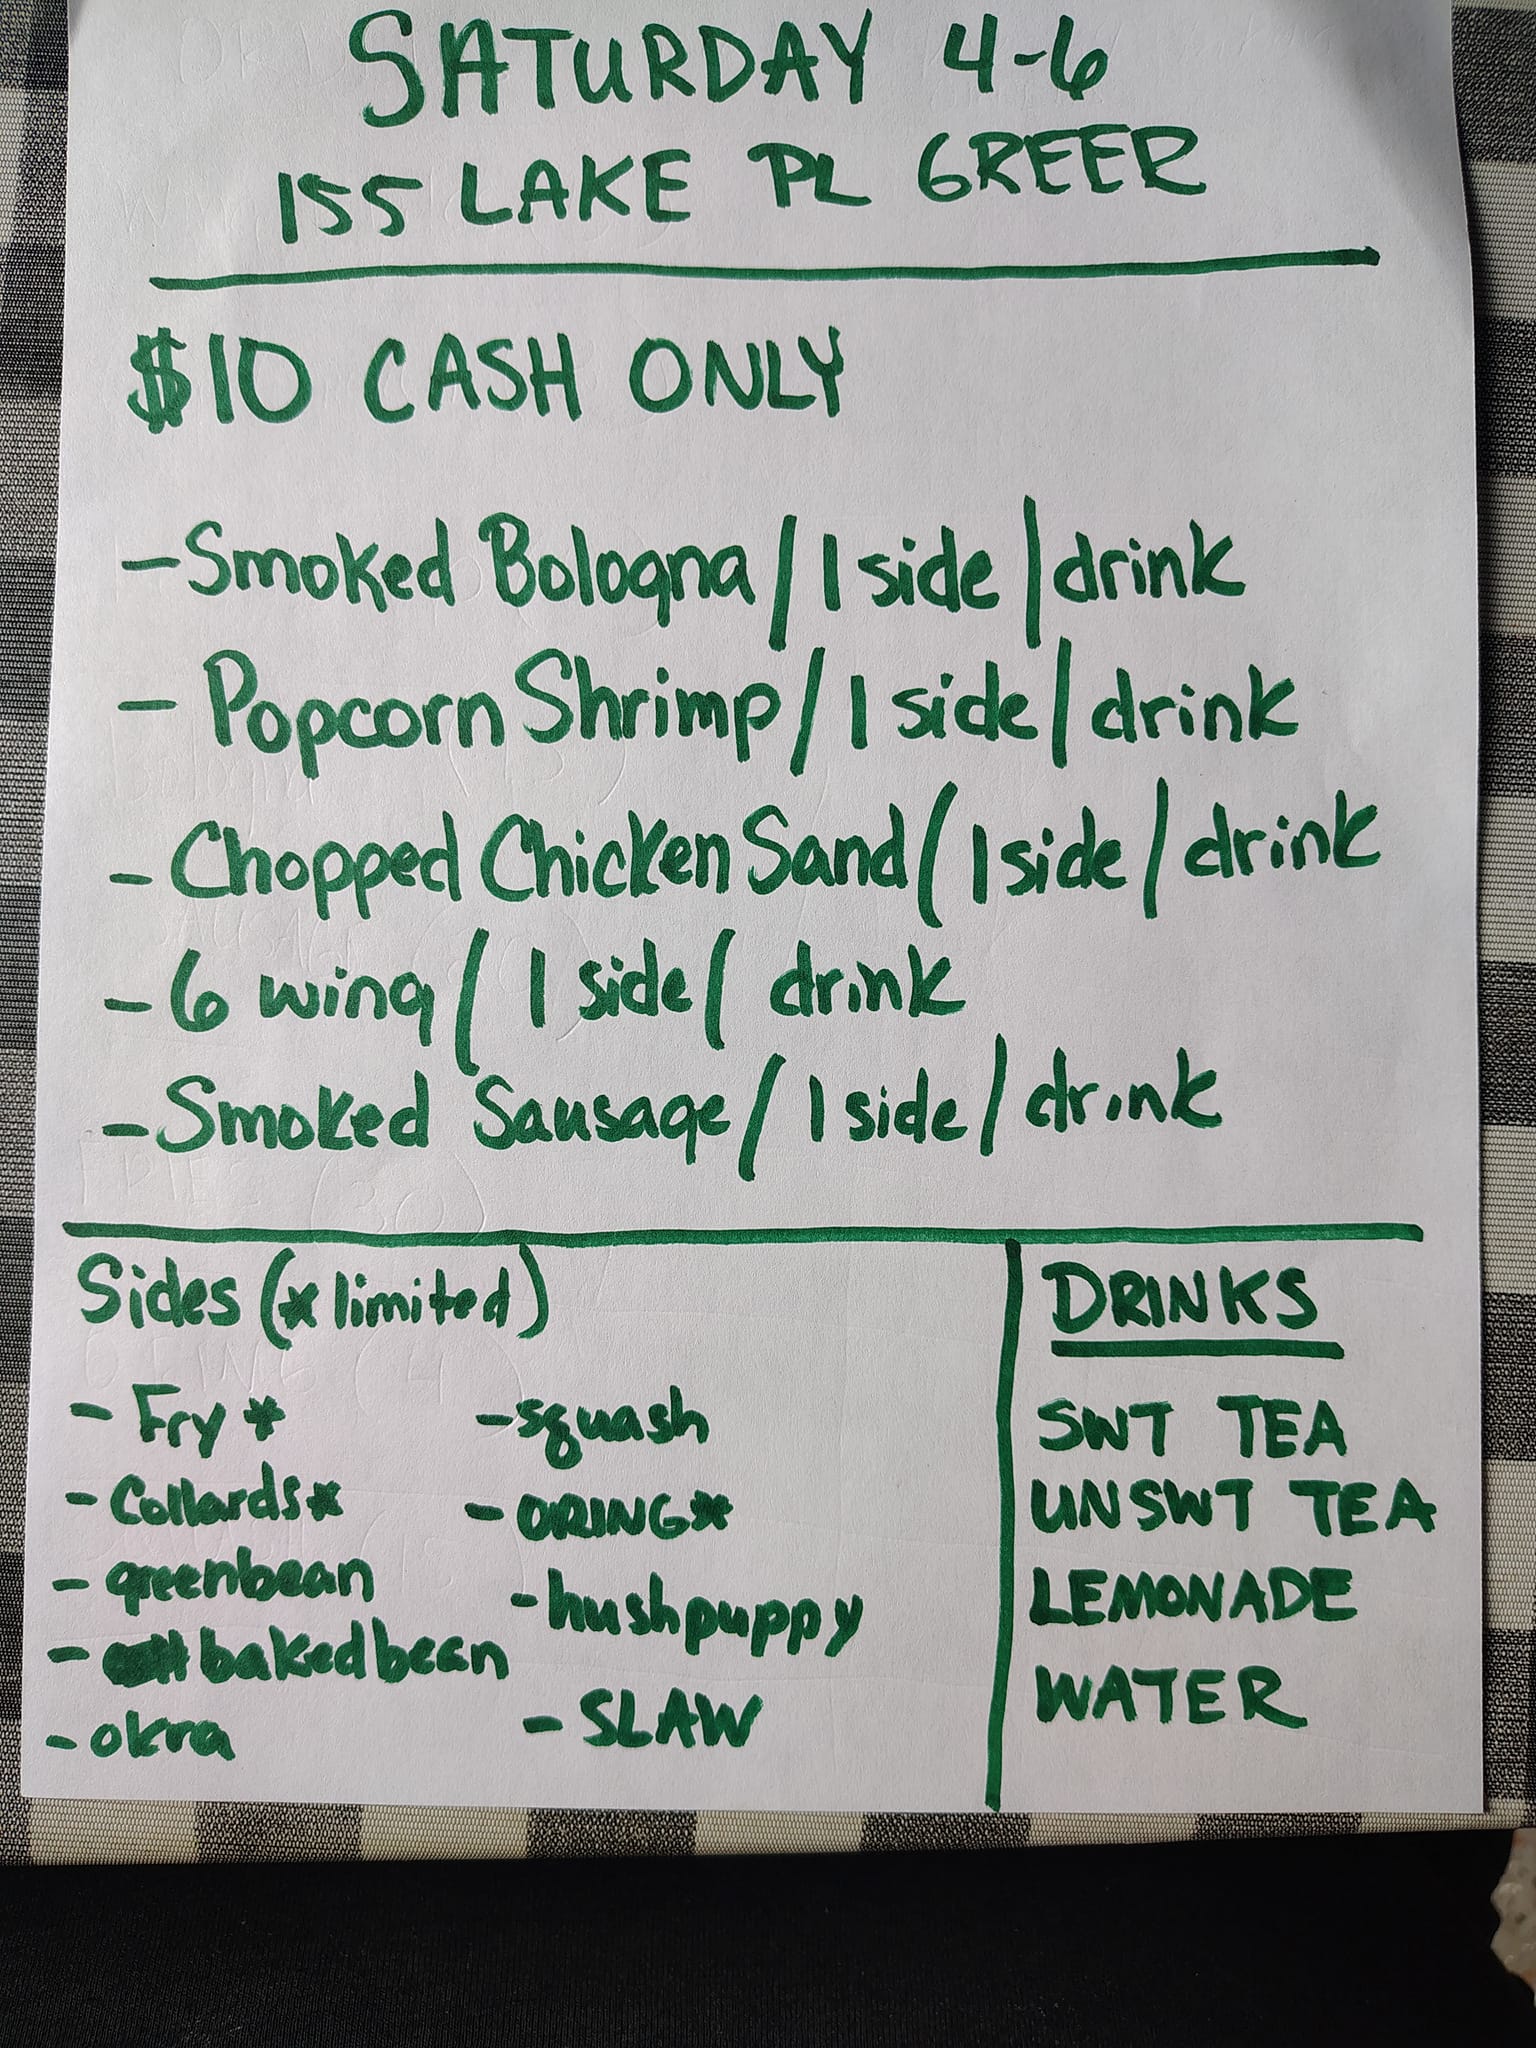 SATURDAY 4-6
155 LAKE PL GREER
$10 CASH ONLY
- Smoked Bologna / 1 side / drink
- Popcorn Shrimp / 1 side / drink
- Chopped Chicken Sand / 1 side / drink
- 6 wing / 1 side / drink
- Smoked Sausage / 1 side / drink
Sides (* limited)
- Fry *
- Collards*
- greenbean
- bakedbean
- okra
- squash
- ORING*
- hushpuppy
- SLAW
DRINKS
SWT TEA
UNSWT TEA
LEMONADE
WATER